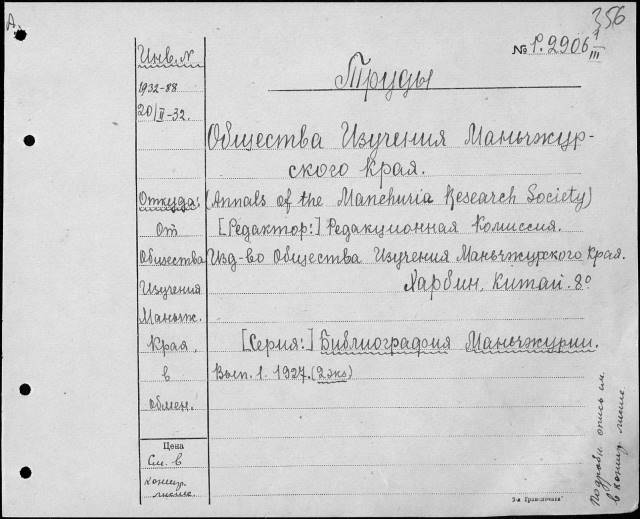 А.
356
№ Р. 2906 I/III
Инв. №
1932-88
20/II-32.
Труды
Общества Изучения Маньчжур-
ского Края.
Откуда:
(Annals of the Manchuria Research Society)
От
[Редактор:] Редакционная Комиссия.
Общества
Изд-во Общества Изучения Маньчжурского Края.
Изучения
Харбин, Китай. 8°
Маньчж.
Края
[Серия:] Библиография Маньчжурии.
в
Вып. 1. 1927. (2 экз)
обмен.
Цена
См. в
конц.
листе.
подробн. опись см.
в конц. листе